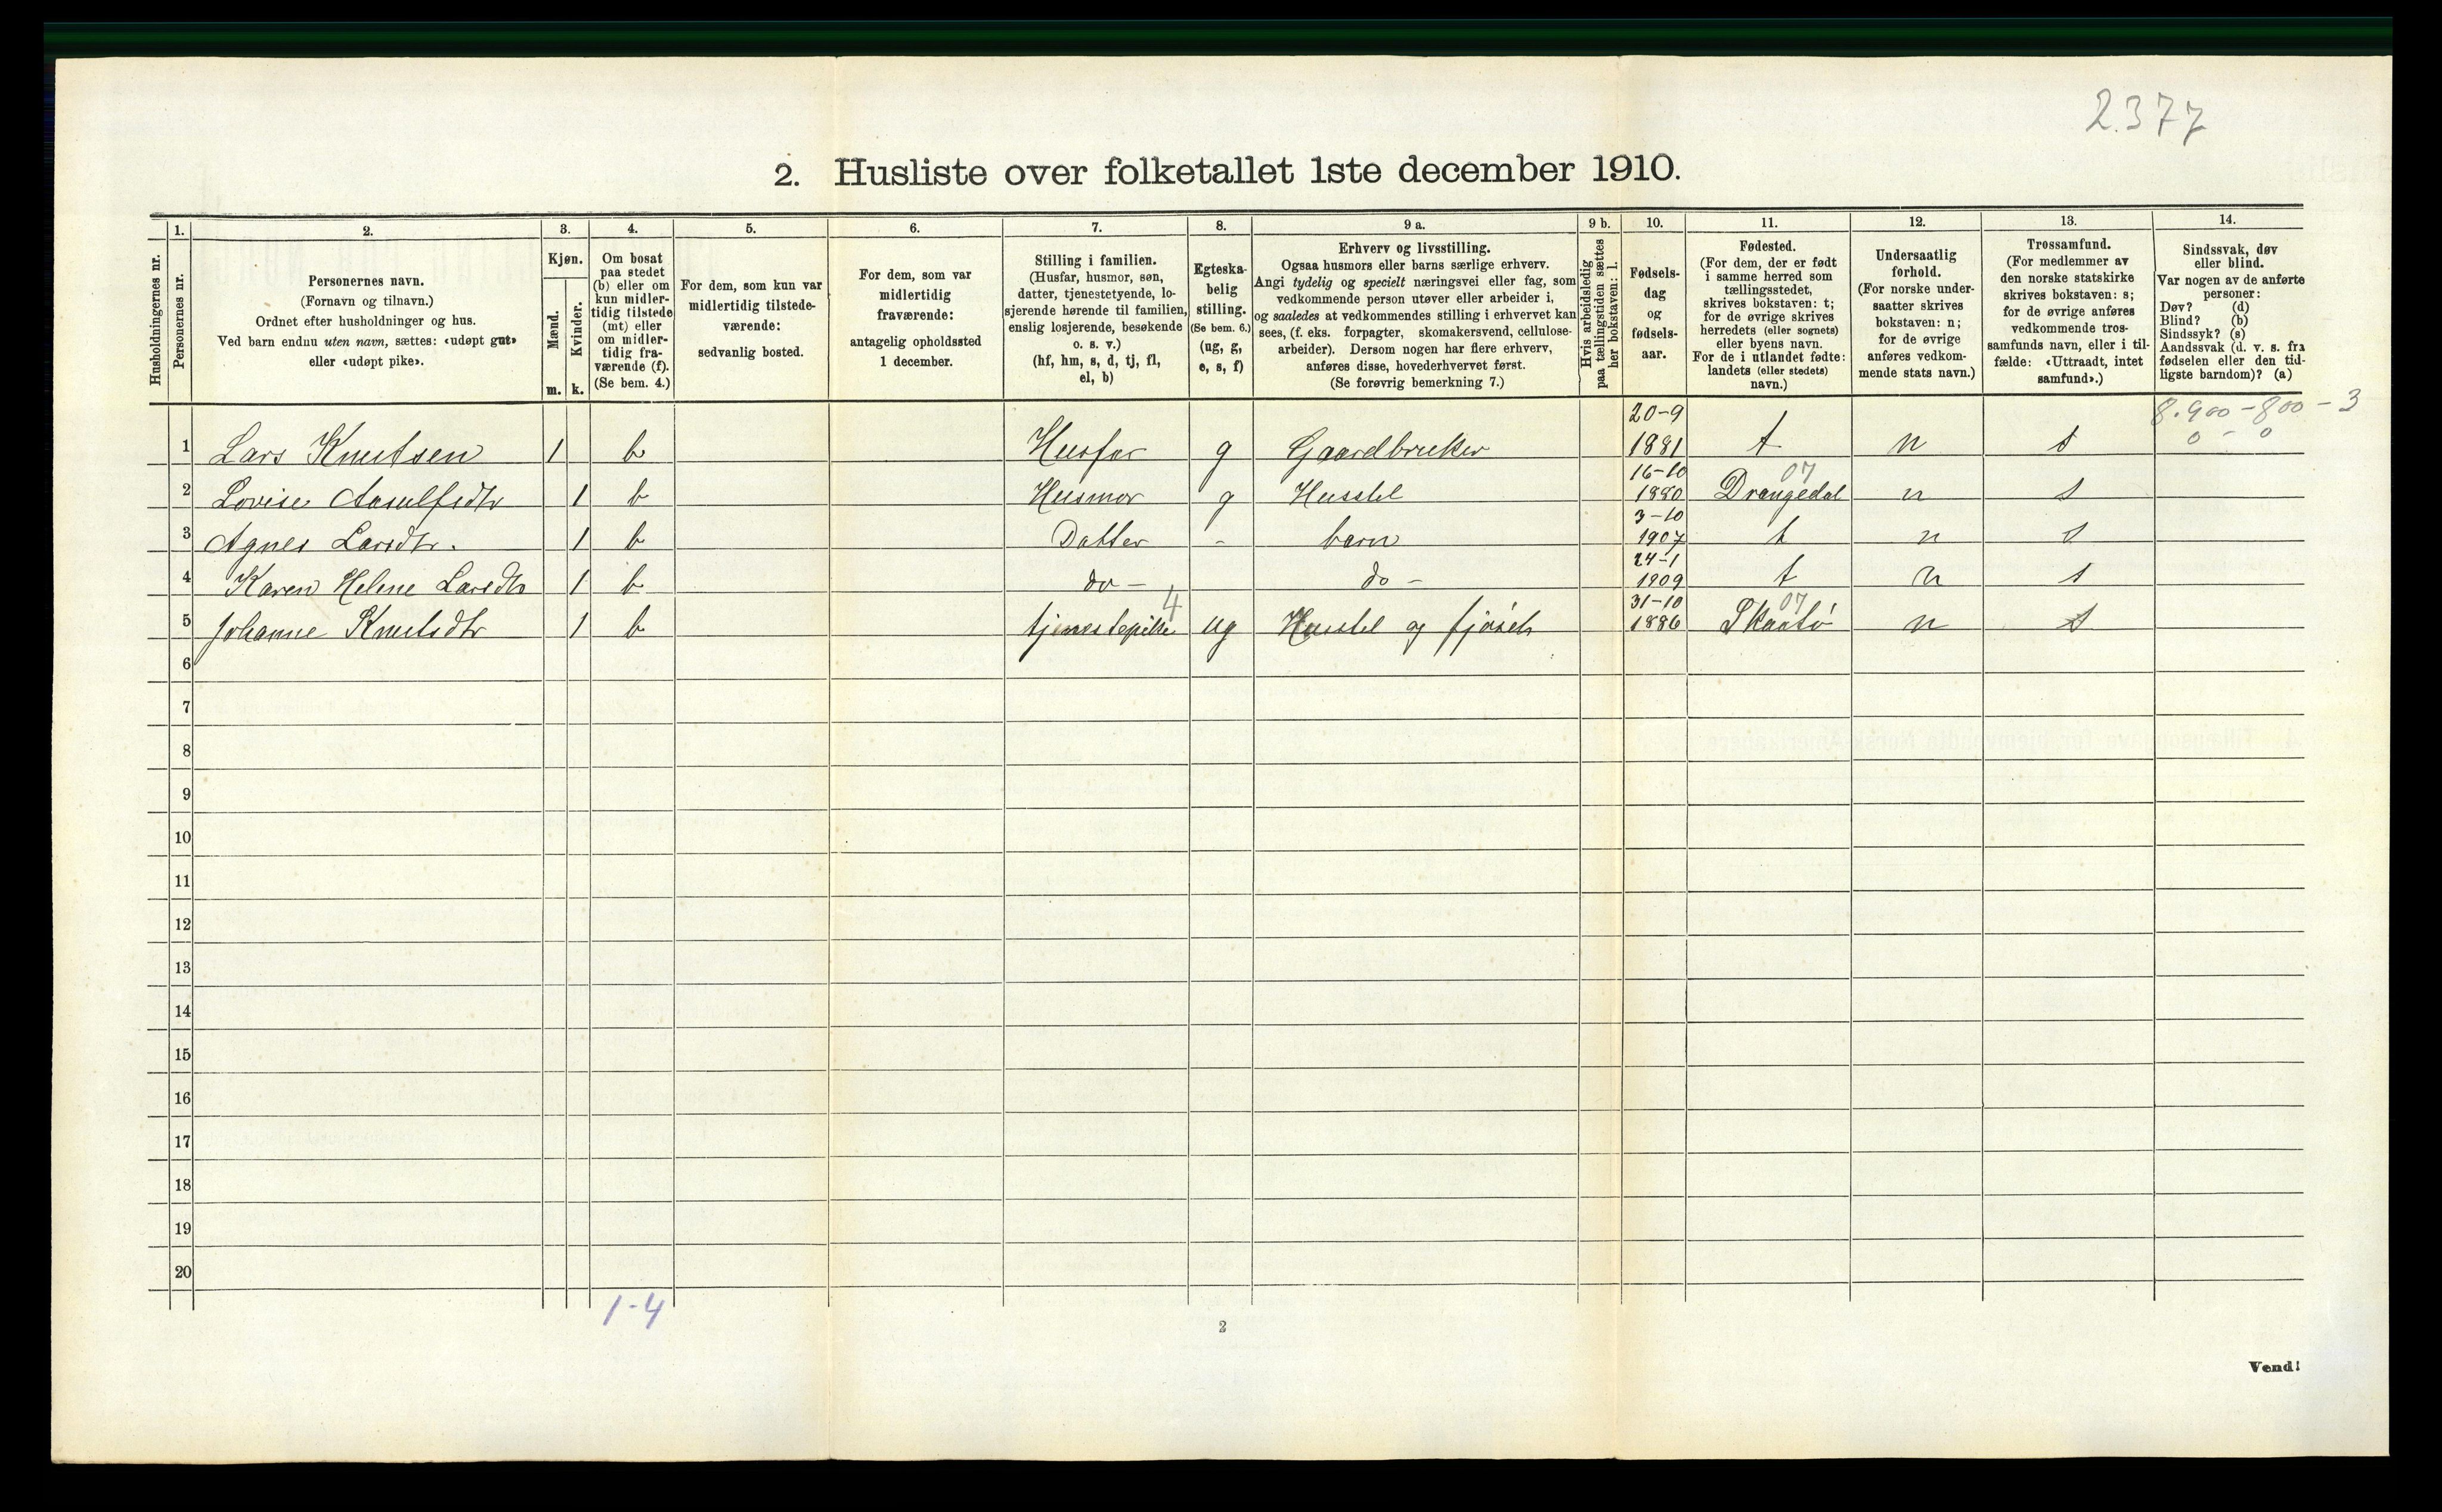 2377
2. Husliste over folketallet 1ste december 1910.
Husholdningernes nr.
1.
Personernes nr.
2.
Personernes navn.
(Fornavn og tilnavn.)
Ordnet efter husholdninger og hus.
Ved barn endnu uten navn, sættes: «udøpt gut»
eller «udøpt pike».
3.
Kjøn.
Mænd.
m.
Kvinder.
k.
4.
Om bosat
paa stedet
(b) eller om
kun midler-
tidig tilstede
(mt) eller
om midler-
tidig fra-
værende (f).
(Se bem. 4.)
5.
For dem, som kun var
midlertidig tilstede-
værende:
sedvanlig bosted.
6.
For dem, som var
midlertidig
fraværende:
antagelig opholdssted
1 december.
7.
Stilling i familien.
(Husfar, husmor, søn,
datter, tjenestetyende, lo-
sjerende hørende til familien,
enslig losjerende, besøkende
o. s. v.)
(hf, hm, s, d, tj, fl,
el, b)
8.
Egteska-
belig
stilling.
(Se bem. 6.)
(ug, g,
e, s, f)
9 a.
Erhverv og livsstilling.
Ogsaa husmors eller barns særlige erhverv.
Angi tydelig og specielt næringsvei eller fag, som
vedkommende person utøver eller arbeider i,
og saaledes at vedkommendes stilling i erhvervet kan
sees, (f. eks. forpagter, skomakersvend, cellulose-
arbeider). Dersom nogen har flere erhverv,
anføres disse, hovederhvervet først.
(Se forøvrig bemerkning 7.)
9 b.
Hvis arbeidsledig
paa tællingstiden sættes
her bokstaven: l.
10.
Fødsels-
dag
og
fødsels-
aar.
11.
Fødested.
(For dem, der er født
i samme herred som
tællingsstedet,
skrives bokstaven: t;
for de øvrige skrives
herredets (eller sognets)
eller byens navn.
For de i utlandet fødte:
landets (eller stedets)
navn.)
12.
Undersaatlig
forhold.
(For norske under-
saatter skrives
bokstaven: n;
for de øvrige
anføres vedkom-
mende stats navn.)
13.
Trossamfund.
(For medlemmer av
den norske statskirke
skrives bokstaven: s;
for de øvrige anføres
vedkommende tros-
samfunds navn, eller i til-
fælde: «Uttraadt, intet
samfund».)
14.
Sindssvak, døv
eller blind.
Var nogen av de anførte
personer:
Døv? (d)
Blind? (b)
Sindssyk? (s)
Aandssvak (d. v. s. fra
fødselen eller den tid-
ligste barndom)? (a)
8.900 - 800 - 3
0 - 0
1 Lars Knutsen 1 b Husfar g Gaardbruker 20-9 1881 t n s
2 Lovise Aasulfsdtr 1 b Husmor g Husstel 16-10 1880 07 Drangedal n s
3 Agnes Larsdtr. 1 b Datter - barn 3-10 1907 t n s
4 Karen Helene Larsdtr 1 b do - do - 24-1 1909 t n s
5 Johanne Knutsdtr 1 b tjenestepike 4 ug Husstel og fjøsstel 31-10 1886 07 Skaatø n s
6
7
8
9
10
11
12
13
14
15
16
17
18
19
20
1-4
2
Vend!